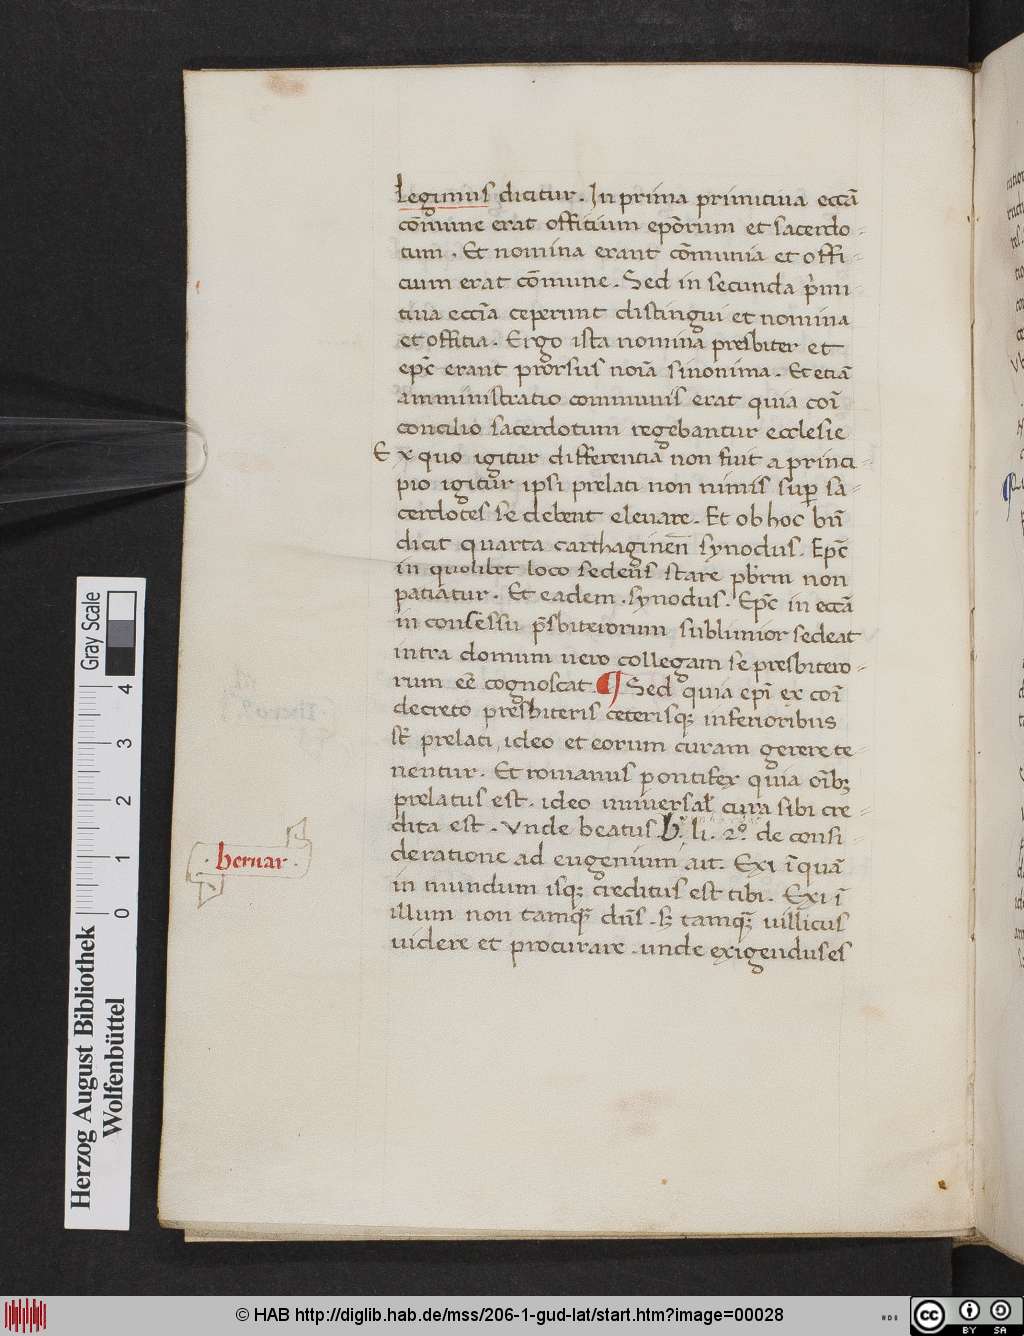 Legimus dicitur. In prima primitiua eccā
cōmune erat offitium epōrum et sacerdo-
tum. Et nomina erant cōmunia et offi-
cium erat cōmune. Sed in secunda p̄mi-
tiua eccīa ceperunt distingui et nomina
et offitia. Ergo ista nomina presbiter et
epc̄ erant prorsus noīa sinonima. Et etiā
amministratio communis erat quia coī
concilio sacerdotum regebantur ecclesie
Ex quo igitur differentia non fuit a princi-
pio igitur ipsi prelati non nimis sup sa-
cerdotes se debent eleuare. Et ob hoc bn̄
dicit quarta carthaginen̄ synodus. Epc̄
in quolibet loco sedens stare pb̄rm non
patiatur. Et eadem synodus. Epc̄ in eccā
in consessu p̄sbiterorum sublimior sedeat
intra domum uero collegam se presbitero-
rum eē cognoscat ¶ Sed quia epī ex coī
decreto presbiteris ceterisqȝ inferioribus
st̄ prelati, ideo et eorum curam gerere te-
nentur. Et romanus pontifex quia oībȝ
prelatus est. ideo uniuersal' cura sibi cre-
dita est. Vnde beatus b. li. 2º. de consi-
deratione ad eugenium ait. Exi īquā
in mundum isqȝ creditus est tibi. Exi ī
illum non tamqȝ dn̄s. sȝ tamqȝ uillicus
uidere et procurare. unde exigendus es
· bernar ·
Herzog August Bibliothek
Wolfenbüttel
Gray Scale
0 1 2 3 4
© HAB http://diglib.hab.de/mss/206-1-gud-lat/start.htm?image=00028
CC BY SA